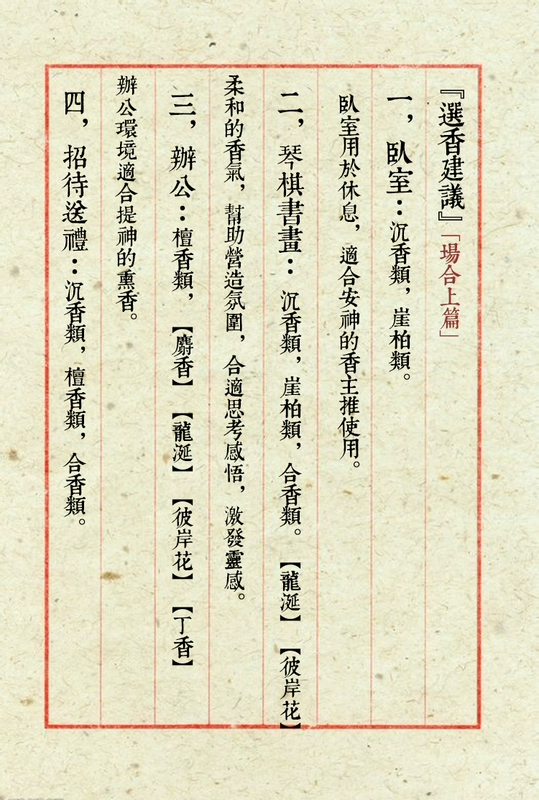 『選香建議』「場合上篇」
一，臥室：沉香類，崖柏類。
臥室用於休息，適合安神的香主推使用。
二，琴棋書畫：沉香類，崖柏類，合香類。【龍涎】【彼岸花】
柔和的香氣，幫助營造氛圍，合適思考感悟，激發靈感。
三，辦公：檀香類，【麝香】【龍涎】【彼岸花】【丁香】
辦公環境適合提神的熏香。
四，招待送禮：沉香類，檀香類，合香類。